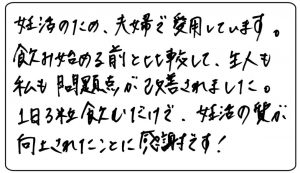 妊活のため、夫婦で愛用しています。
飲み始める前と比較して、主人も
私も問題点が改善されました。
1日3粒飲むだけで、妊活の質が
向上されたことに感謝です!